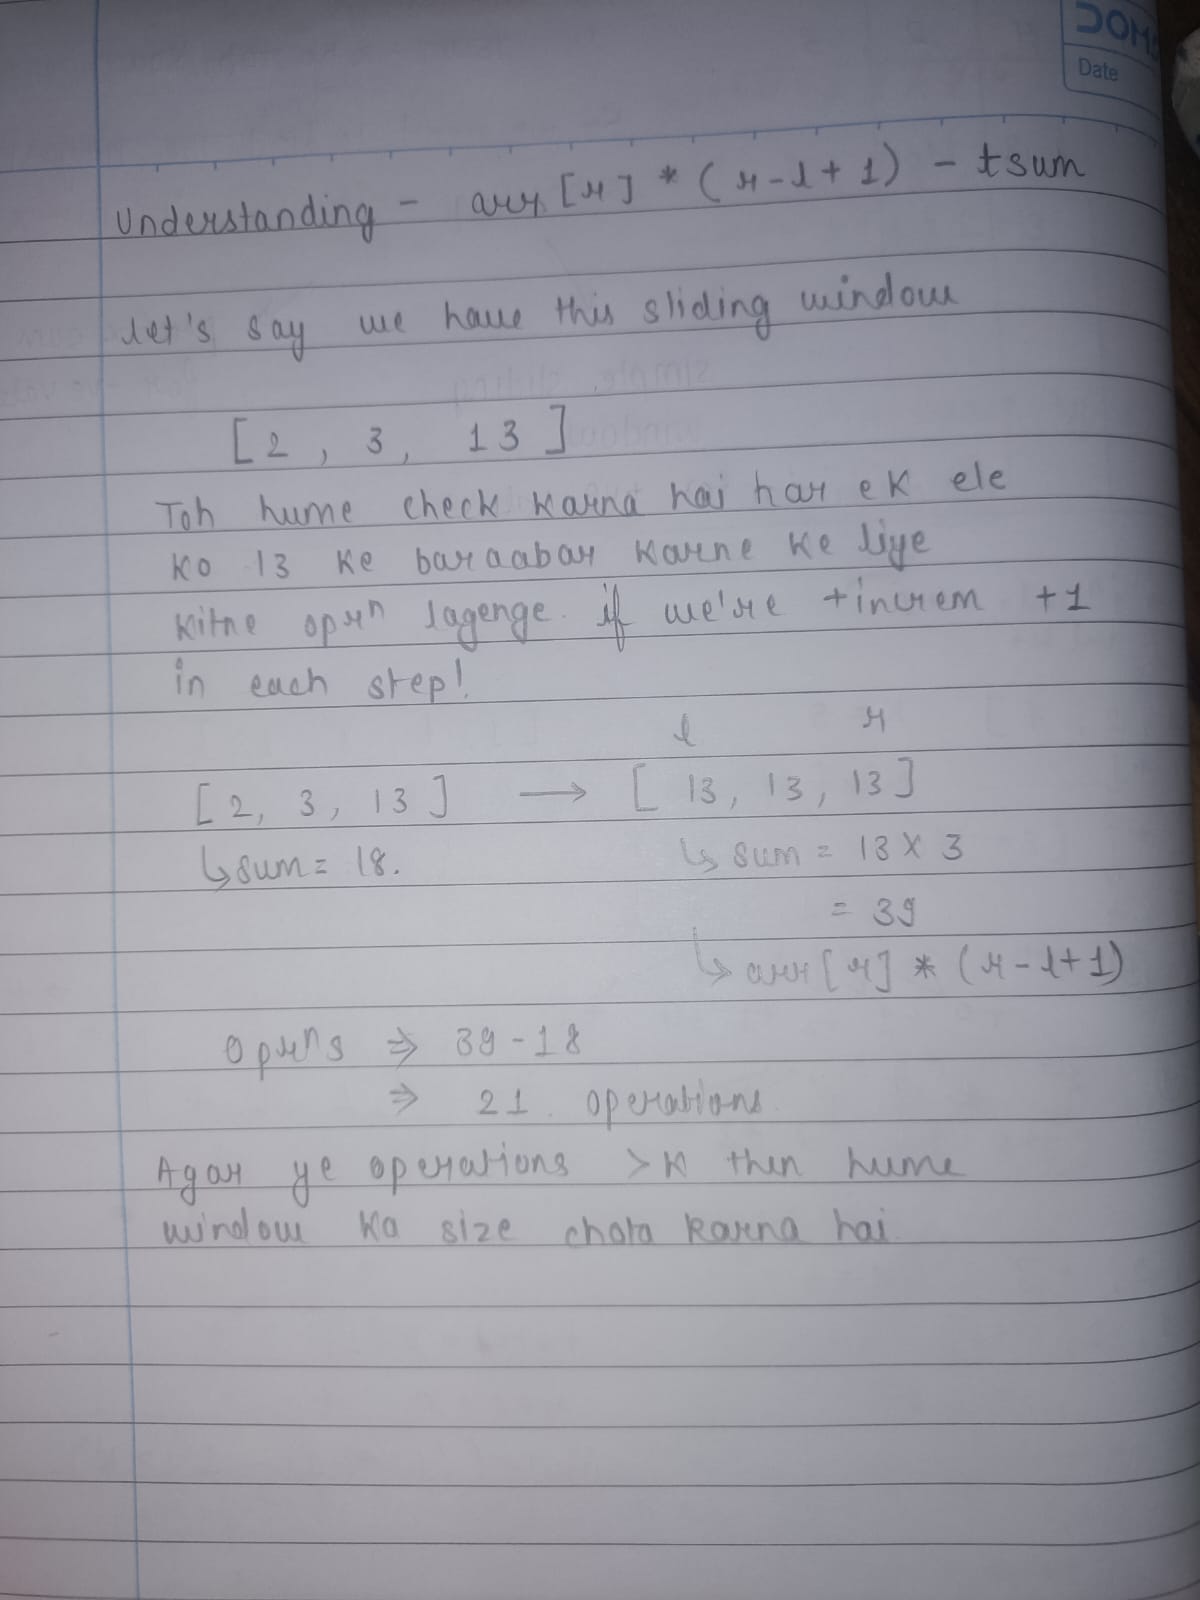 DOMS
Date
Understanding - arr[r] * (r-l+1) - tsum
let's say we have this sliding window
[2, 3, 13]
Toh hume check karna hai har ek ele
ko 13 ke baraabar karne ke liye
kitne oprⁿ lagenge. if we're +increm +1
in each step!
l r
[2, 3, 13] → [13, 13, 13]
↳ sum = 18. ↳ sum = 13 x 3
= 39
↳ arr[r] * (r-l+1)
oprⁿs ⇒ 39-18
⇒ 21. operations
Agar ye operations >K then hume
window ka size chota karna hai